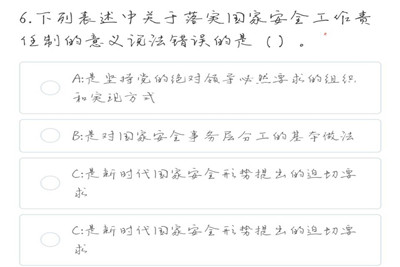 6.下列表述中关于落实国家安全工作责
任制的意义说法错误的是（）。
A:是坚持党的绝对领导必然要求的组织
和实现方式
B:是对国家安全事务层分工的基本做法
C:是新时代国家安全形势提出的迫切要
求
C:是新时代国家安全形势提出的迫切要
求